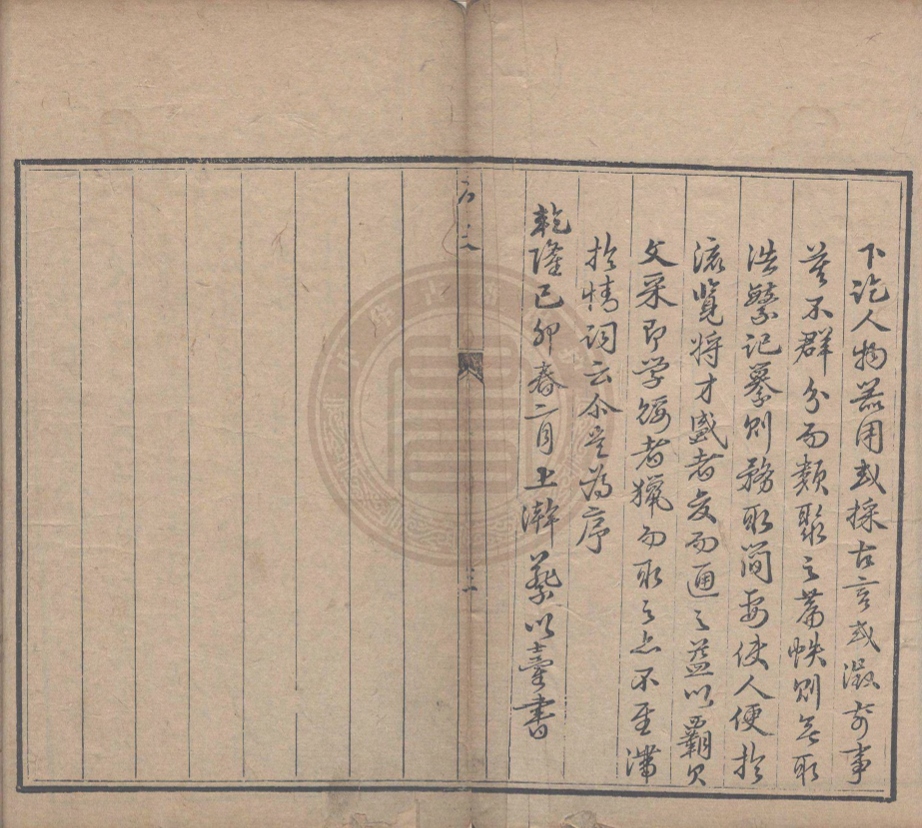 下訖人物器用或採古言或濈奇事
莫不群分而類聚之篇帙則無取
浩繁記纂則務取簡要使人便於
流覽將才盛者友而通之益以覇其
文采即學緩者獵而取之亦不至滯
於情詞云介是為序
乾隆己卯春二月上澣蔡以臺書
序文
三